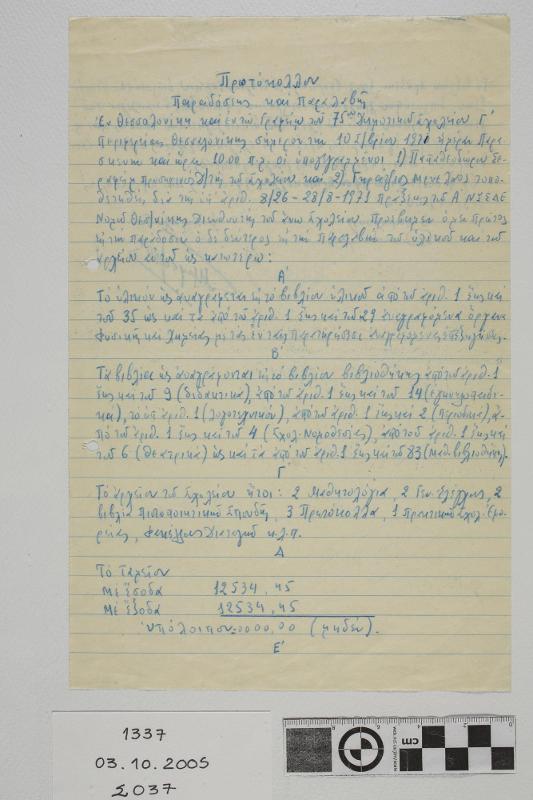 Πρωτόκολλον
Παραδόσεως καὶ Παραλαβῆς
Ἐν Θεσσαλονίκῃ καὶ ἐν τῷ Γραφείῳ τοῦ 75ου Δημοτικοῦ Σχολείου Γ'
Περιφερείας Θεσσαλονίκης σήμερον τὴν 10 Σ/βρίου 1971 ἡμέραν Παρα-
σκευὴν καὶ ὥραν 10.00 π.μ. οἱ ὑπογεγραμμένοι 1) Παπαθεοδώρου Σε-
ραφεὶμ προσωρινὸς Δ/τὴς τοῦ σχολείου καὶ 2) Μενέλαος τοπο-
θετηθεὶς διὰ τῆς ὑπ' ἀριθ. 8/26-28/8-1971 πράξεως τοῦ Α ΝΥΣΔΕ
Νομοῦ Θεσ/νίκης Διευθυντὴς τοῦ ἄνω Σχολείου, Προέβημεν ὁ μὲν πρῶτος
εἰς τὴν παράδοσιν ὁ δὲ δεύτερος εἰς τὴν παραλαβὴν τοῦ ὑλικοῦ καὶ τοῦ
ἀρχείου αὐτοῦ ὡς κατωτέρω:
Α'
Τὸ ὑλικὸν ὡς ἀναγράφεται εἰς τὸ βιβλίον ὑλικοῦ ἀπὸ τοῦ ἀριθ. 1 ἕως καὶ
τοῦ 35 ὡς καὶ τὰ ἀπὸ τοῦ ἀριθ. 1 ἕως καὶ τοῦ 29 ἀναγραφόμενα ὄργανα
Φυσικῆς καὶ Χημείας μὲ τὰς ἐν ταῖς παρατηρήσεσι ἀναγραφομένας ἐπεξηγήσεις.
Β'
Τὰ βιβλία ὡς ἀναγράφονται εἰς τὸ βιβλίον βιβλιοθήκης ἀπὸ τοῦ ἀριθ. 1
ἕως καὶ τοῦ 9 (διδακτικά), ἀπὸ τοῦ ἀριθ. 1 ἕως καὶ τοῦ 14 (ἐγκυκλοπαιδι-
καί), τὸ ὑπ' ἀριθ. 1 (λογοτεχνικόν), ἀπὸ τοῦ ἀριθ. 1 ἕως καὶ 2 (περιοδικά), ἀ-
πὸ τοῦ ἀριθ. 1 ἕως καὶ τοῦ 4 (Σχολ. Νομοθεσίας), ἀπὸ τοῦ ἀριθ. 1 ἕως καὶ
τοῦ 6 (Θεατρικά) ὡς καὶ τὰ ἀπὸ τοῦ ἀριθ. 1 ἕως καὶ τοῦ 83 (Μαθ. βιβλιοθήκης).
Γ'
Τὸ ἀρχεῖον τοῦ Σχολείου ἤτοι: 2 Μαθητολόγια, 2 Γεν. ἐλέγχους, 2
βιβλία πιστοποιητικοῦ σπουδῆς, 3 Πρωτόκολλα, 1 πρακτικῶν Σχολ. Ἐφο-
ρείας, φακέλλους κ.λ.π.
Δ
Τὸ ταμεῖον
Μὲ ἔσοδα 12534,45
Μὲ ἔξοδα 12534,45
ὑπόλοιπον: 0000,00 (μηδέν).
Ε'
1337
03.10.2005
Σ037
cm